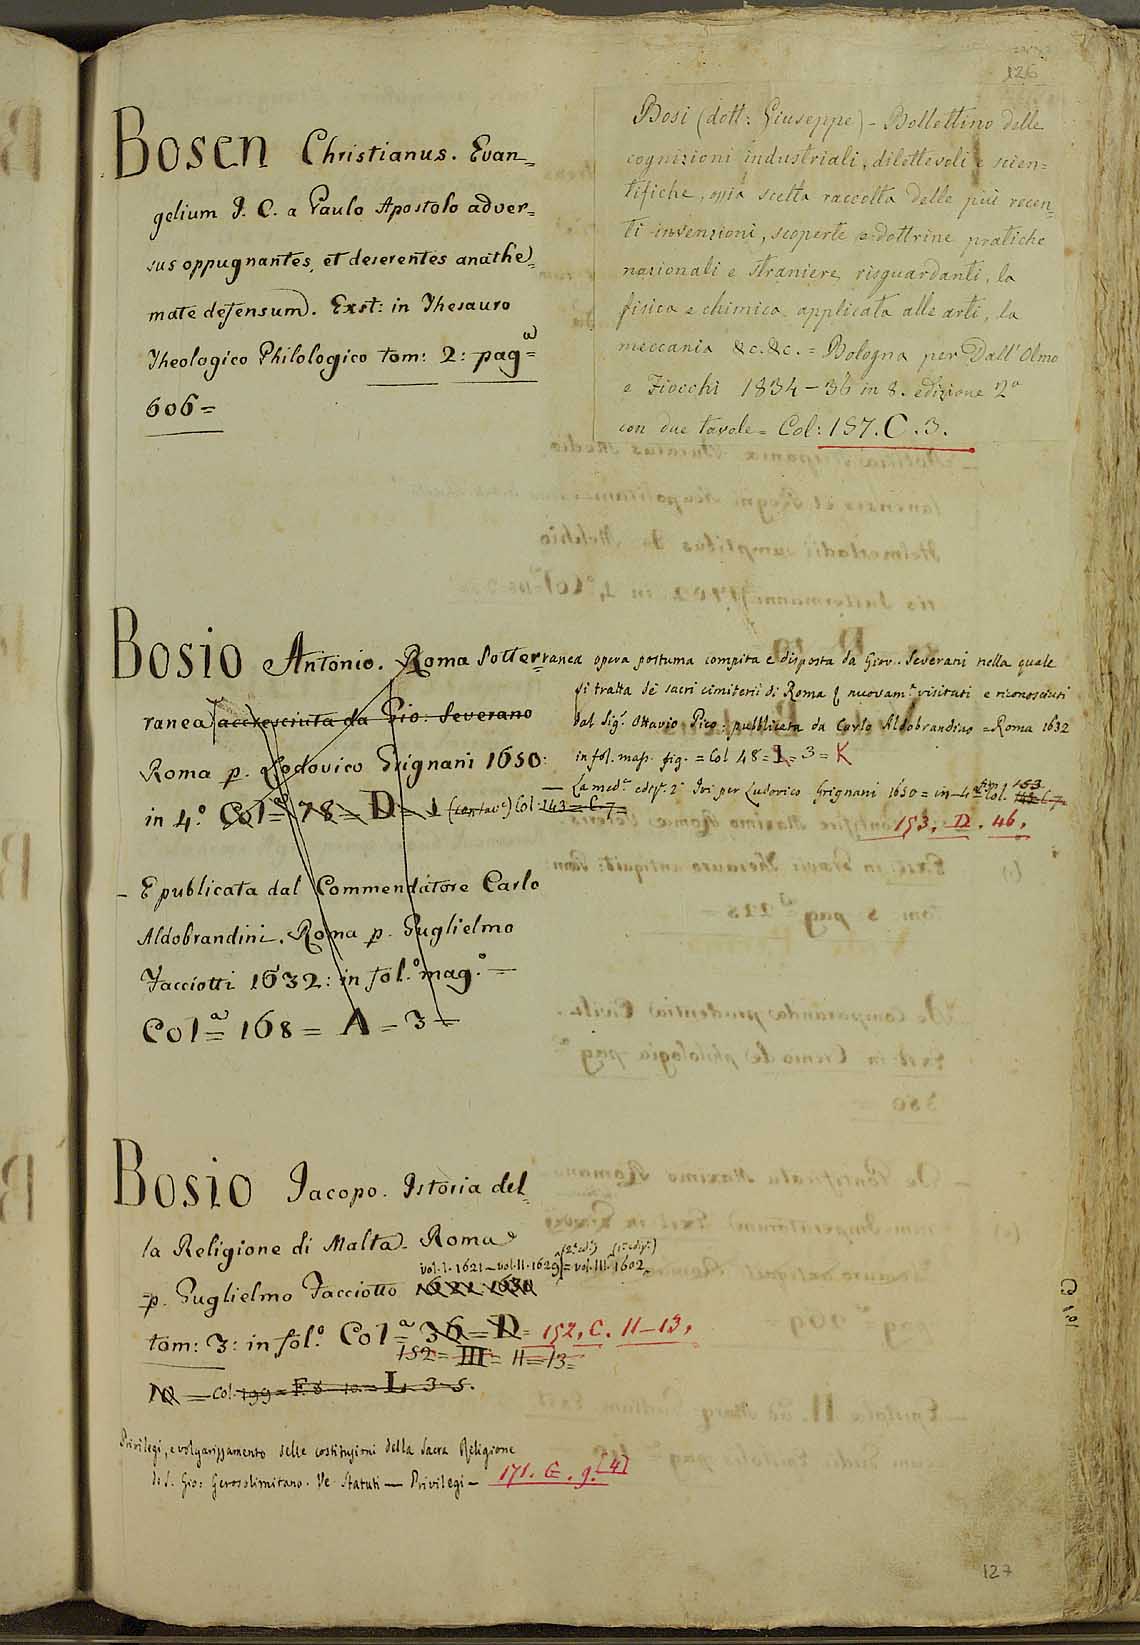 126
Bosen Christianus. Evan=
gelium J. C. a Paulo Apostolo adver=
sus oppugnantes, et deserentes anathe=
mate defensum. Exst: in Thesauro
Theologico Philologico tom: 2: pag=
606=
Bosi (dott: Giuseppe) - Bollettino delle
cognizioni industriali, dilettevoli e scien=
tifiche, ossia scelta raccolta delle più recen=
ti invenzioni, scoperte e dottrine pratiche
nazionali e straniere risguardanti, la
fisica e chimica applicata alle arti, la
meccania &c. &c. = Bologna per Dall'Olmo
e Fiocchi 1834-36 in 8. edizione 2ª
con due tavole = Col: 157. C. 3.
Bosio Antonio. Roma Sotter=
ranea accresciuta da Gio: Severano
Roma p. Lodovico Grignani 1650:
in 4.º Colª= 78= D= 1 Col 143= C 7=
ranea opera postuma compita e disposta da Giov. Severani nella quale
si tratta de' sacri cimiterii di Roma nuovam.e visitati e riconosciuti
dal Sig.r Ottavio Pico: pubblicata da Carlo Aldobrandino = Roma 1632
in fol. mass. fig. = Col 48 = 1 = 3 = K
— La med.ª ediz.e 2ª Ivi per Ludovico Grignani 1650 = in-4 Col. 153
153. D. 46.
– E publicata dal Commendatore Carlo
Aldobrandini. Roma p. Guglielmo
Facciotti 1632: in fol.º mag.º —
Colª= 168 = A = 3 =
Bosio Jacopo. Istoria del=
la Religione di Malta. Roma
vol. I. 1621 — vol. II. 1629 (2ª ediz.) = vol. III. 1602 (1ª ediz.)
p. Guglielmo Facciotto 1621 1630
tom: 3: in fol.º Colª= 36= D= 152. C. 11-13.
152= III= 11=13=
Col. 199= F. 8 L. 3-5.
Privilegi, e volgarizzamento delle costituzioni della Sacra Religione
di S. Gio: Gerosolimitano. Ve Statuti — Privilegi – 171. G. 9. [4]
127